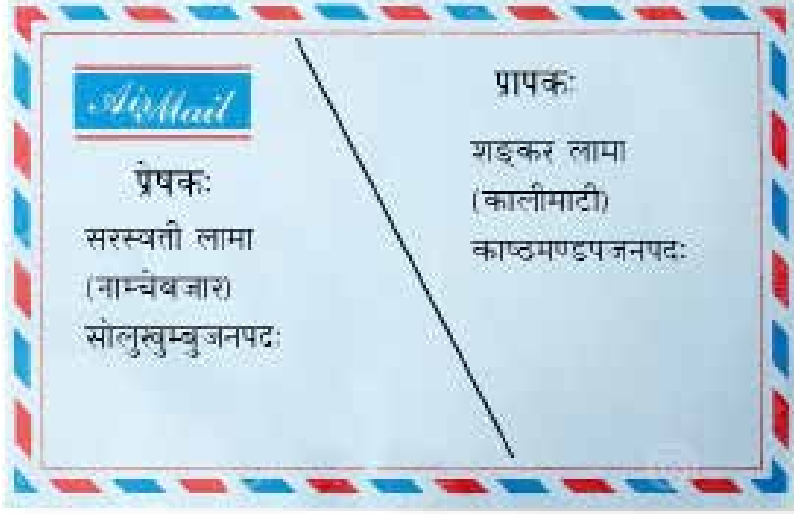 AirMail
प्रेषकः
सरस्वती लामा
(नाम्चेबजार)
सोलुखुम्बुजनपदः
प्रापकः
शङ्कर लामा
(कालीमाटी)
काष्ठमण्डपजनपदः